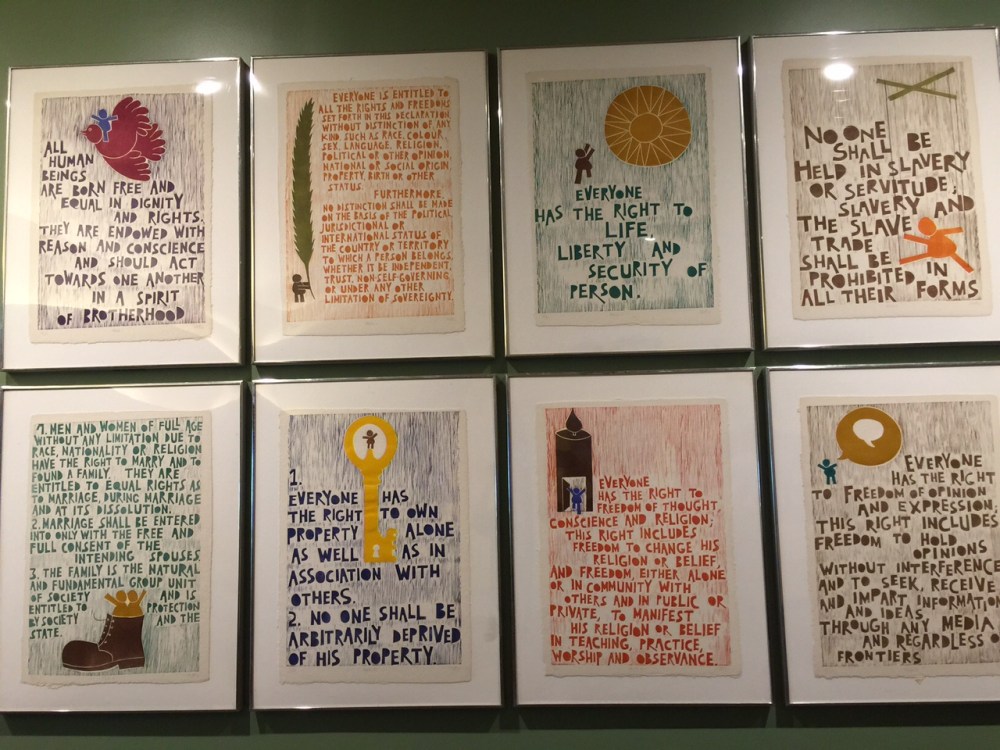 ALL
HUMAN
BEINGS
ARE BORN FREE AND
EQUAL IN DIGNITY
AND RIGHTS.
THEY ARE ENDOWED WITH
REASON AND CONSCIENCE
AND SHOULD ACT
TOWARDS ONE ANOTHER
IN A SPIRIT
OF BROTHERHOOD
EVERYONE IS ENTITLED TO
ALL THE RIGHTS AND FREEDOMS
SET FORTH IN THIS DECLARATION,
WITHOUT DISTINCTION OF ANY
KIND, SUCH AS RACE, COLOUR,
SEX, LANGUAGE, RELIGION,
POLITICAL OR OTHER OPINION,
NATIONAL OR SOCIAL ORIGIN,
PROPERTY, BIRTH OR OTHER
STATUS.
FURTHERMORE,
NO DISTINCTION SHALL BE MADE
ON THE BASIS OF THE POLITICAL,
JURISDICTIONAL OR
INTERNATIONAL STATUS OF
THE COUNTRY OR TERRITORY
TO WHICH A PERSON BELONGS,
WHETHER IT BE INDEPENDENT,
TRUST, NON-SELF-GOVERNING
OR UNDER ANY OTHER
LIMITATION OF SOVEREIGNTY.
EVERYONE
HAS THE RIGHT TO
LIFE,
LIBERTY AND
SECURITY OF
PERSON.
NO ONE
SHALL BE
HELD IN SLAVERY
OR SERVITUDE;
SLAVERY AND
THE SLAVE
TRADE
SHALL BE
PROHIBITED IN
ALL THEIR FORMS
1. MEN AND WOMEN OF FULL AGE
WITHOUT ANY LIMITATION DUE TO
RACE, NATIONALITY OR RELIGION
HAVE THE RIGHT TO MARRY AND TO
FOUND A FAMILY. THEY ARE
ENTITLED TO EQUAL RIGHTS AS
TO MARRIAGE, DURING MARRIAGE
AND AT ITS DISSOLUTION.
2. MARRIAGE SHALL BE ENTERED
INTO ONLY WITH THE FREE AND
FULL CONSENT OF THE
INTENDING SPOUSES.
3. THE FAMILY IS THE NATURAL
AND FUNDAMENTAL GROUP UNIT
OF SOCIETY AND IS
ENTITLED TO PROTECTION
BY SOCIETY AND THE
STATE.
1.
EVERYONE HAS
THE RIGHT TO OWN
PROPERTY ALONE
AS WELL AS IN
ASSOCIATION WITH
OTHERS.
2. NO ONE SHALL BE
ARBITRARILY DEPRIVED
OF HIS PROPERTY.
EVERYONE
HAS THE RIGHT TO
FREEDOM OF THOUGHT,
CONSCIENCE AND RELIGION;
THIS RIGHT INCLUDES
FREEDOM TO CHANGE HIS
RELIGION OR BELIEF,
AND FREEDOM, EITHER ALONE
OR IN COMMUNITY WITH
OTHERS AND IN PUBLIC OR
PRIVATE, TO MANIFEST
HIS RELIGION OR BELIEF
IN TEACHING, PRACTICE,
WORSHIP AND OBSERVANCE.
EVERYONE
HAS THE RIGHT
TO FREEDOM OF OPINION
AND EXPRESSION,
THIS RIGHT INCLUDES
FREEDOM TO HOLD
OPINIONS
WITHOUT INTERFERENCE
AND TO SEEK, RECEIVE
AND IMPART INFORMATION
AND IDEAS
THROUGH ANY MEDIA
AND REGARDLESS O
FRONTIERS